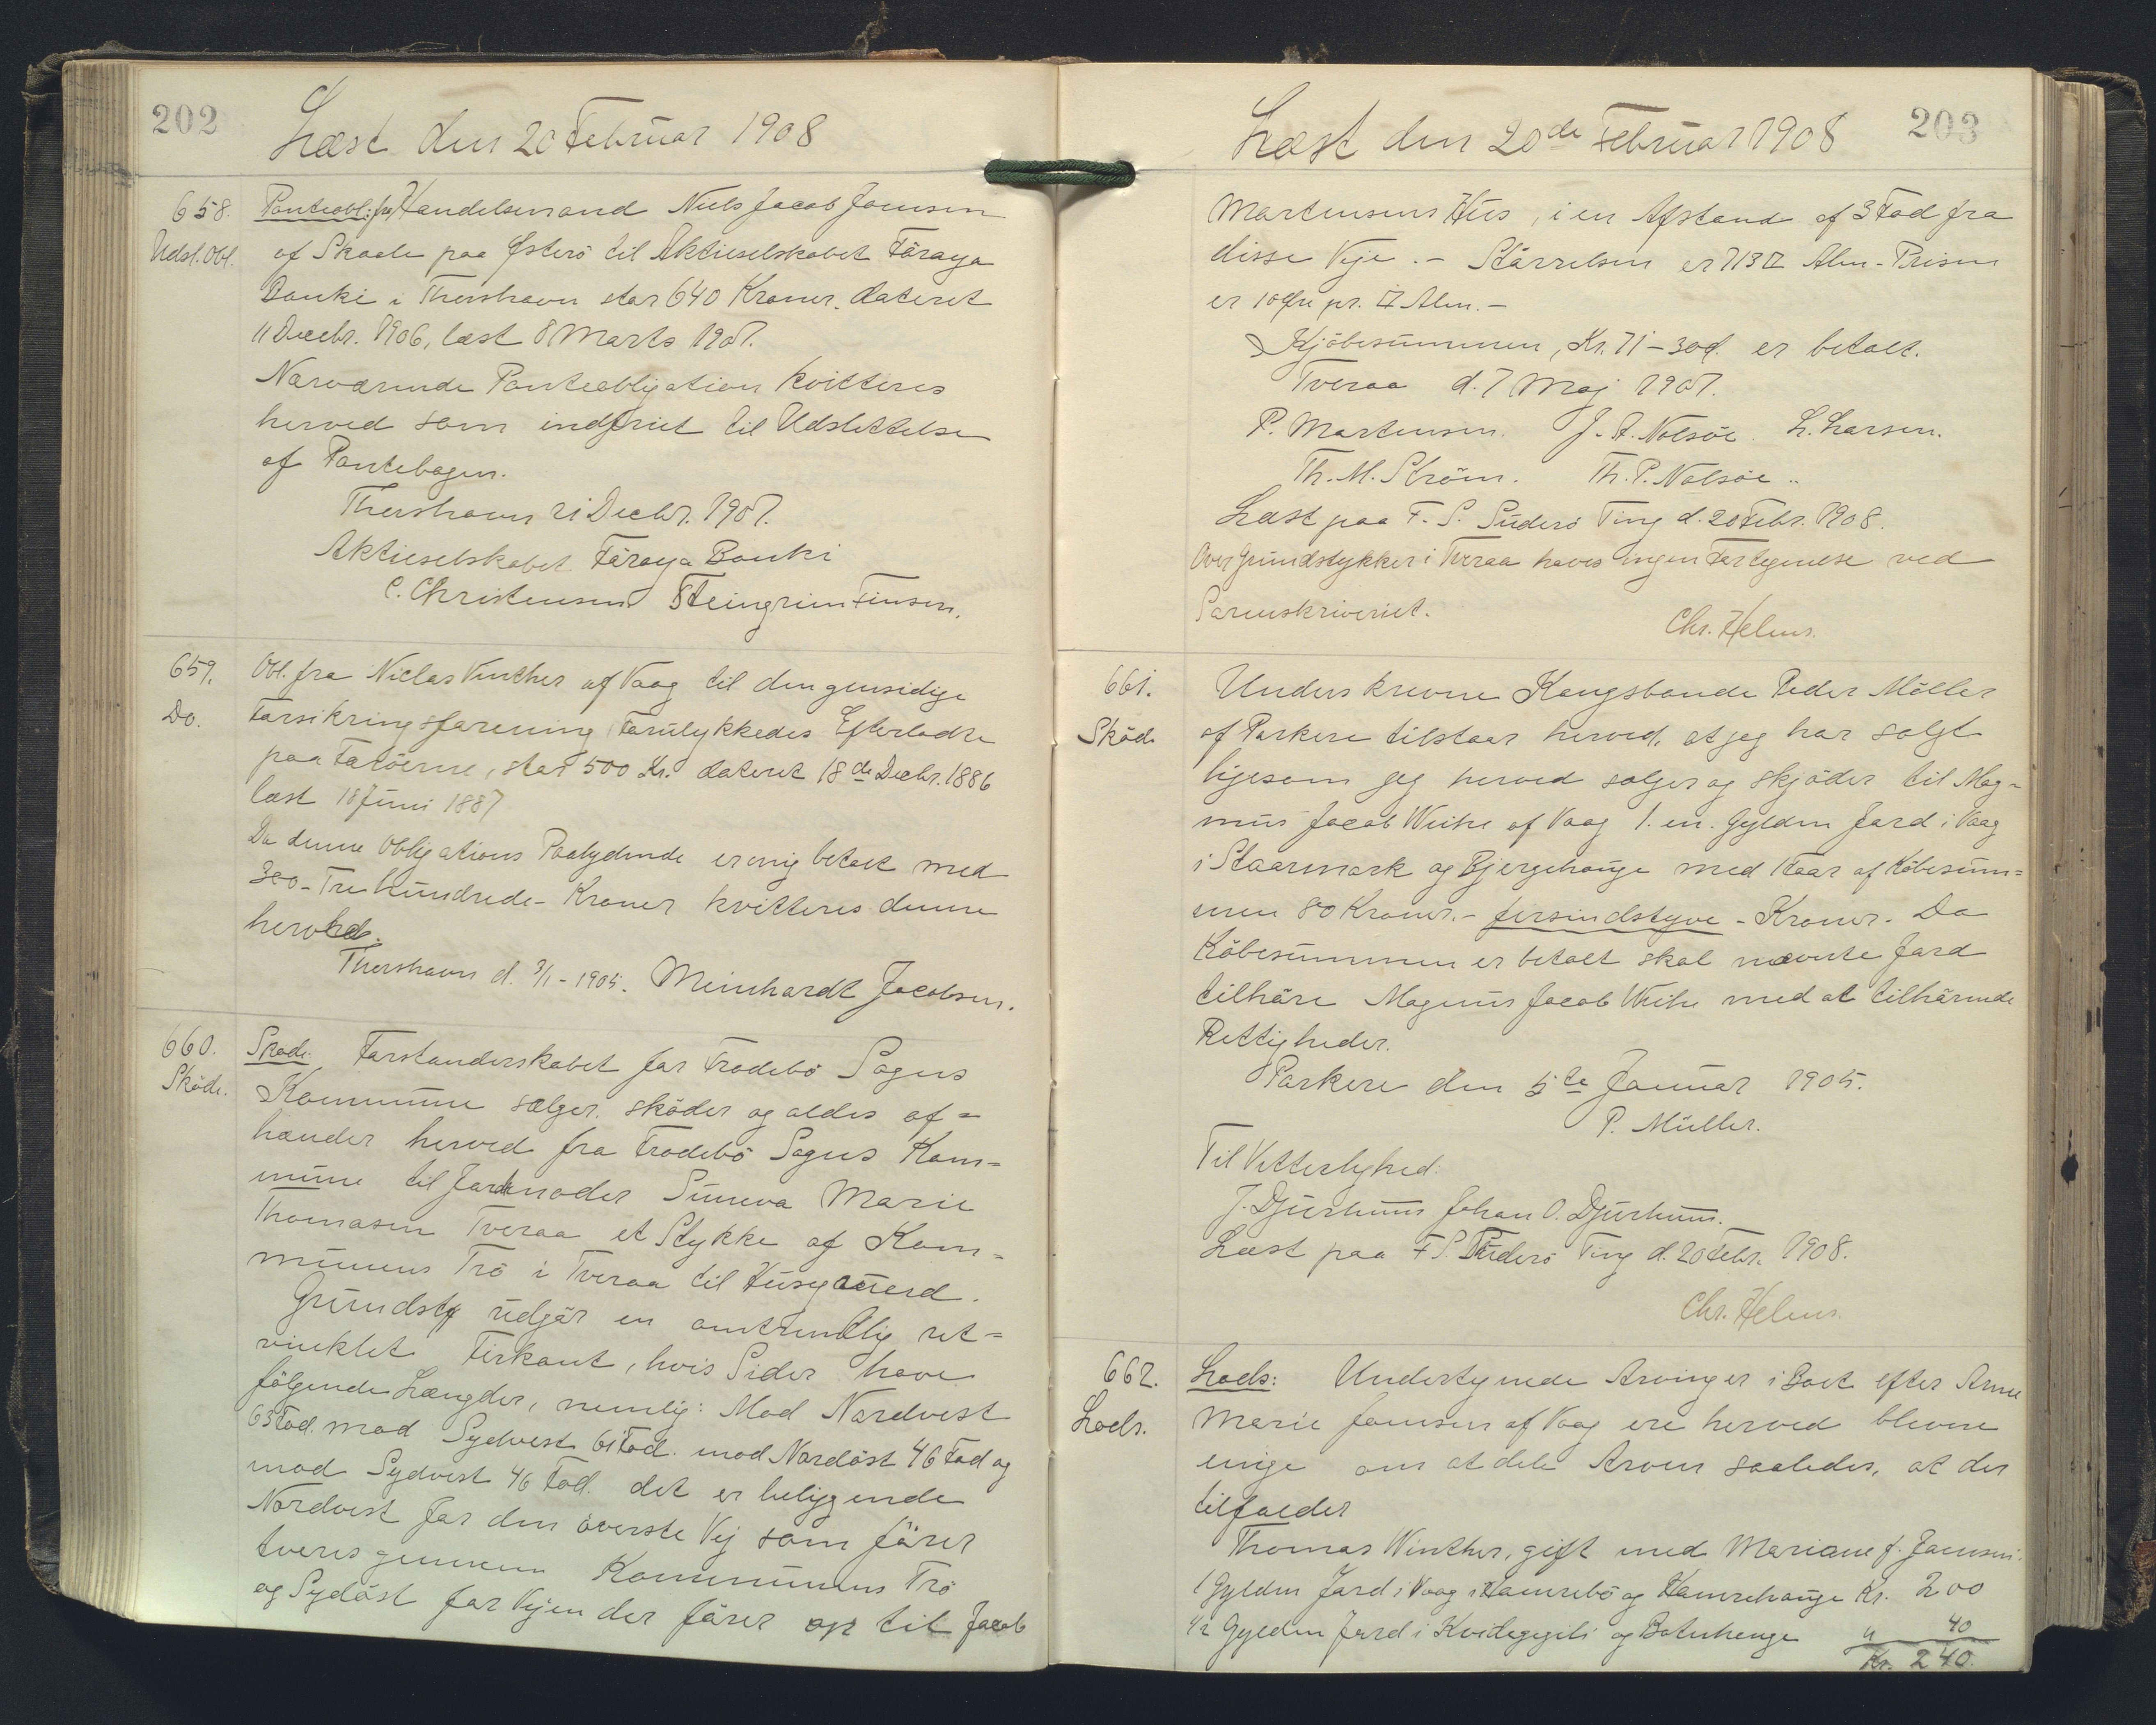 202
Læst den 20 Februar 1908
658. Panteobl: fra Handelsmand Niels Jacob Joensen
Udsl. Obl. af Skaale paa Østerö til Aktieselskabet Föroya
Banki i Thorshavn stor 640 Kroner. dateret
11 Decebr. 1906, læst 8 Marts 1907.
Nærværende Panteobligation kvitteres
herved som indfriet til Udslettelse
af Pantebogen.
Thorshavn 21 Decbr. 1907.
Aktieselskabet Föroya Banki
C. Christensen Steingrim Finsen.
659. Obl. fra Niclas Vinther af Vaag til den gensidige
Do. Forsikringsforening Forulykkedes Efterladte
paa Færöerne, stor 500 Kr. dateret 18de Decbr. 1886
læst 18 Juni 1887
Da denne Obligations Paalydende er mig betalt med
300 - Tre hundrede - Kroner kvitteres denne
herved.
Thorshavn d. 3/1 - 1905. Meinhardt Jacobsen.
660. Skøde. Forstanderskabet for Frodebö Sogns
Sköde. Kommune sælger, sköder og aldes af=
hænder herved fra Frodebö Sogns Kom=
mune til Jordemoder Sunneva Marie
Thomasen Tveraa et Stykke af Kom=
munens Trö i Tveraa til Husgrund.
Grundsty udgör en omtrendlig ret=
vinklet Firkant, hvis Sider have
fölgende Længder, nemlig: Mod Nordvest
63 Fod. mod Sydvest 61 Fod. mod Nordöst 46 Fod og
mod Sydvest 46 Fod. det er beliggende
Nordvest for den överste Vej som förer
tveres gennem Kommunens Trö
og Sydöst for Vejen der förer op til Jacob
Læst den 20de Februar 1908
203
Martensens Hus, i en Afstand af 3 Fod fra
disse Veje. - Störrelsen er 713 □ Alen - Prisen
er 10 Øre pr. □ Alen. -
Kjöbesummen, Kr. 71 - 30 Ø. er betalt.
Tveraa d. 7 Maj 1907.
P. Martensen. J. A. Nolsöe. L. Larsen.
Th. M. Ström. Th. P. Nolsöe ..
Læst paa F. S. Suderö Ting d. 20 Febr. 1908.
Over Grundstykker i Tveraa haves ingen Fortegnelse ved
Sorenskriveriet.
Chr. Helms.
661. Underskrevne Kongsbonde Peder Möller
Sköde af Porkere tilstaar herved, at jeg har solgt
ligesom jeg herved sælger og skjöder til Mag=
nus Jacob Weihe af Vaag 1. en. Gylden Jord i Vaag
i Staarmark og Bjergehauge med Faar af Köbesum=
men 80 Kroner. - firsindstyve - Kroner. Da
Köbesummen er betalt skal nævnte Jord
tilhöre Magnus Jacob Weihe med al tilhörende
Rettigheder.
Porkere den 5te Januar 1905.
P. Müller.
Til Vitterlighed:
J. Djurhuus Johan O. Djurhuus.
Læst paa F S Suderö Ting d. 20 Febr. 1908.
Chr. Helms.
662. Lods: Undertegnede Arvinger i Boet efter Anne
Lods. Marie Joensen af Vaag ere herved blevne
enige om at dele Arven saaledes, at der
tilfalder
Thomas Winther, gift med Mariane f. Joensen.
1 Gylden Jord i Vaag i Hamrebö og Hamrehauge Kr. 200
1/2 Gylden Jord i og " 40
Kr. 240.